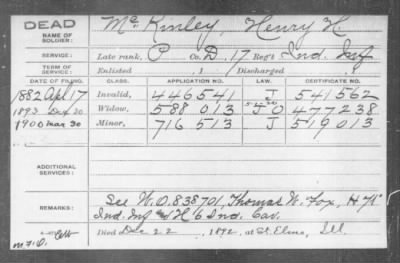 DEAD
NAME OF SOLDIER: McKinley, Henry H.
SERVICE: Late rank, P Co. D. 17 Reg't Ind. Inf
TERM OF SERVICE: Enlisted 1 Discharged
DATE OF FILING. CLASS. APPLICATION NO. LAW. CERTIFICATE NO.
1882 Apl 17 Invalid, 446541 J 541562
1893 Dec 20 Widow, 588013 J O 477238
1900 Mar 30 Minor, 716513 J 519013
ADDITIONAL SERVICES:
REMARKS: See W.O. 838701, Thomas W. Fox, H
Ind. Inf & H 6 Ind. Cav.
Died Dec 22, 1892, at St. Elmo, Ill